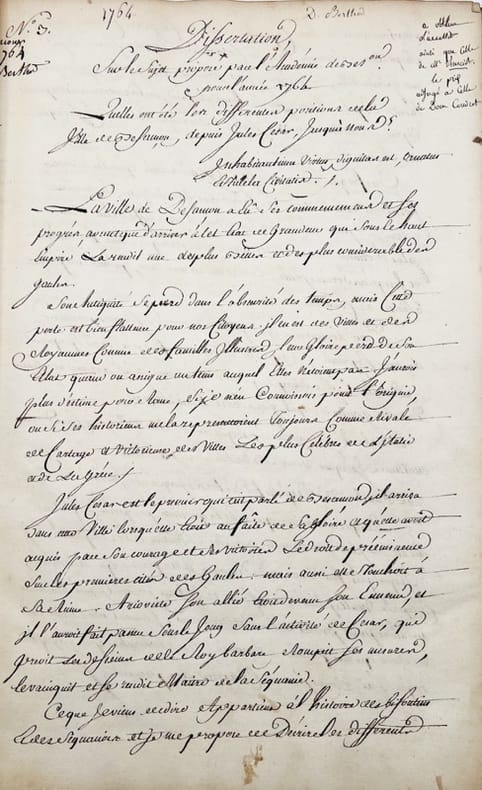 N.° 3.
1764
D. Berthod
1764
Berthod
Dissertation
Sur le Sujet proposé par l'Académie de Bes.on
pour l'année 1764
Quelles ont été les differentes positions de la
Ville de Besançon, depuis Jules Cesar, Jusqu'à nous?
Inhabitantium Virtus, dignitas est, ornatus
Civitatis.
ainsi que Celle
le prix
adjugé a Celle
La Ville de Besançon a eû Ses commencemens et Ses
progrès, avant que d'arriver à cet état de Grandeur qui sous le haut
Empire La rendit une des plus Belles et des plus considerables des
Gaules.
Son Antiquité Se perd dans l'obscurité des temps, mais Cette
perte est bien flatteuse pour nos Citoyens: il en est des Villes et des
Royaumes Comme des familles Illustres, leur Gloire perd de Son
Eclat quand on assigne un tems auquel Elles n'etoient pas. J'aurois
plus d'estime pour Rome, Si je n'en Connoissois point l'Origine,
ou Si Ses historiens me la representoient Toujours Comme Rivale
de Cartage et Victorieuse des Villes Les plus Celebres de L'Italie
et de La Grece.
Jules Cesar est le premier qui ait parlé de Besançon, il arriva
dans cette Ville lorsqu'elle étoit au faîte de la Gloire et qu'elle avoit
acquis par Son courage et Ses Victoires Le Droit de prééminence
Sur les premieres cités des Gaules: mais aussi elle Touchoit à
Sa Ruine. Arioviste Son allié étoit devenu Son Ennemi, et
il l'auroit fait passer Sous le Joug Sans l'activité de Cesar, qui
prévit Les desseins de ce Roy barbare Rompit Ses mesures,
le vainquit et Se rendit Maitre de la Séquanie.
Ce que Je viens de dire Appartient à l'histoire des bisontins
et des Séquanois et je me propose de Décrire les différentes